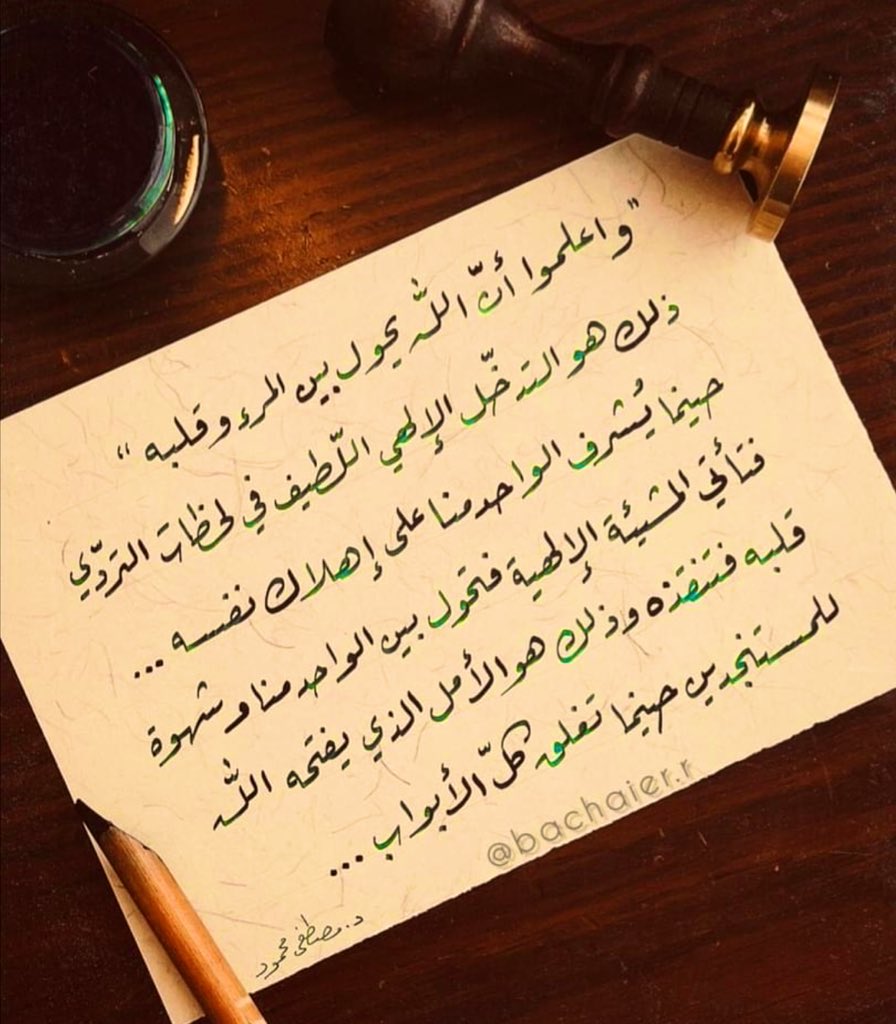 "واعلموا أنّ اللّه يحول بين المرء وقلبه"
ذلك هو التدخّل الإلهي اللّطيف في لحظات التردّي
حينما يُشرف الواحد منا على إهلاك نفسه ...
فتأتي المشيئة الإلهية فتحول بين الواحد منا و شهوة
قلبه فتنقذه وذلك هو الأمل الذي يفتحه اللّه
للمستنجدين حينما تغلق كلّ الأبواب ...
@bachaier.r
د. مصطفى محمود